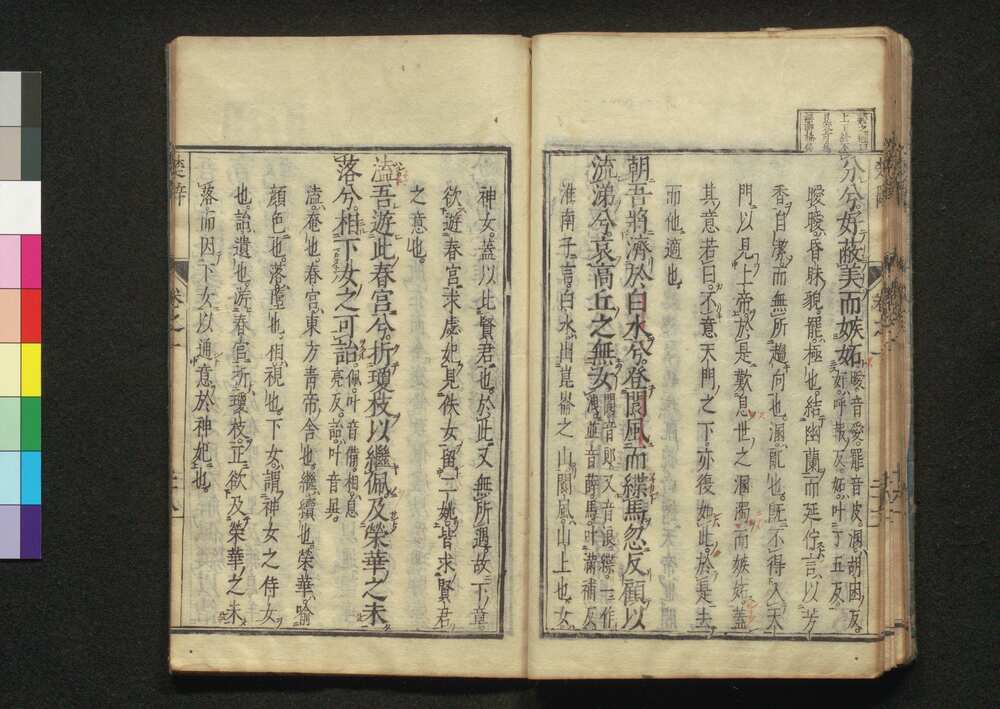 分兮。好蔽美而嫉妬。曖音愛。罷音皮。溷胡困反。好呼報反。妬叶丁五反。
曖曖。昏昧貌。罷極也。結幽蘭而延佇。言以芳
香自潔而無所趨向也。溷亂也。既不得入天
門以見上帝。於是歎息世之溷濁而嫉妬。蓋
其意若曰。不意天門之下亦復如此。於是去
而他適也。
朝吾將濟於白水兮。登閬風而緤馬。忽反顧以
流涕兮。哀高丘之無女。閬音郎。又音浪。緤一作
緤並音薛。馬叶滿補反。
淮南子言。白水出崑崙之山。閬風山上也。女
神女。蓋以比賢君也。於此又無所遇。故下章
欲遊春宮。求虙妃。見佚女。留二姚。皆求賢君
之意也。
溘吾遊此春宮兮。折瓊枝以繼佩。及榮華之未
落兮。相下女之可詒。佩叶音備。相息亮反。詒叶音異。
溘奄也。春宮東方青帝舍也。繼續也。榮華喻
顏色也。落墮也。相視也。下女謂神女之侍女
也。詒遺也。游春宮。折瓊枝。正欲及榮華之未
落而因下女以通意於神妃也。
楚辭
卷之一